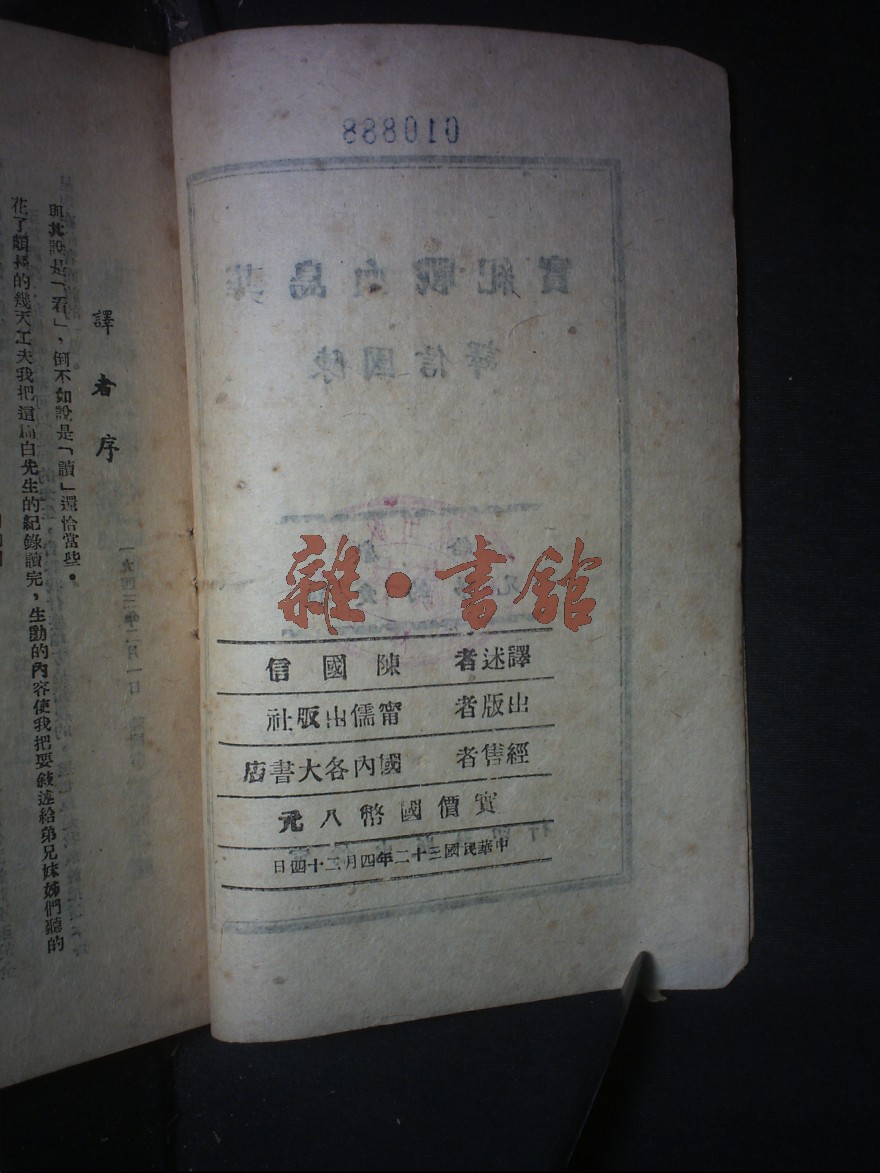 010888
菲島血戰紀實
陳國信譯
雜·書館
譯述者 陳國信
出版者 甯儒出版社
經售者 國內各大書店
實價國幣八元
中華民國三十二年四月二十四日
譯者序
與其說是「看」，倒不如說是「讀」還恰當些。
花了頗長的幾天工夫我把這篇白先生的紀錄讀完，生動的內容使我把要敘述給弟兄妹姊們聽的
一九四三年二月一日